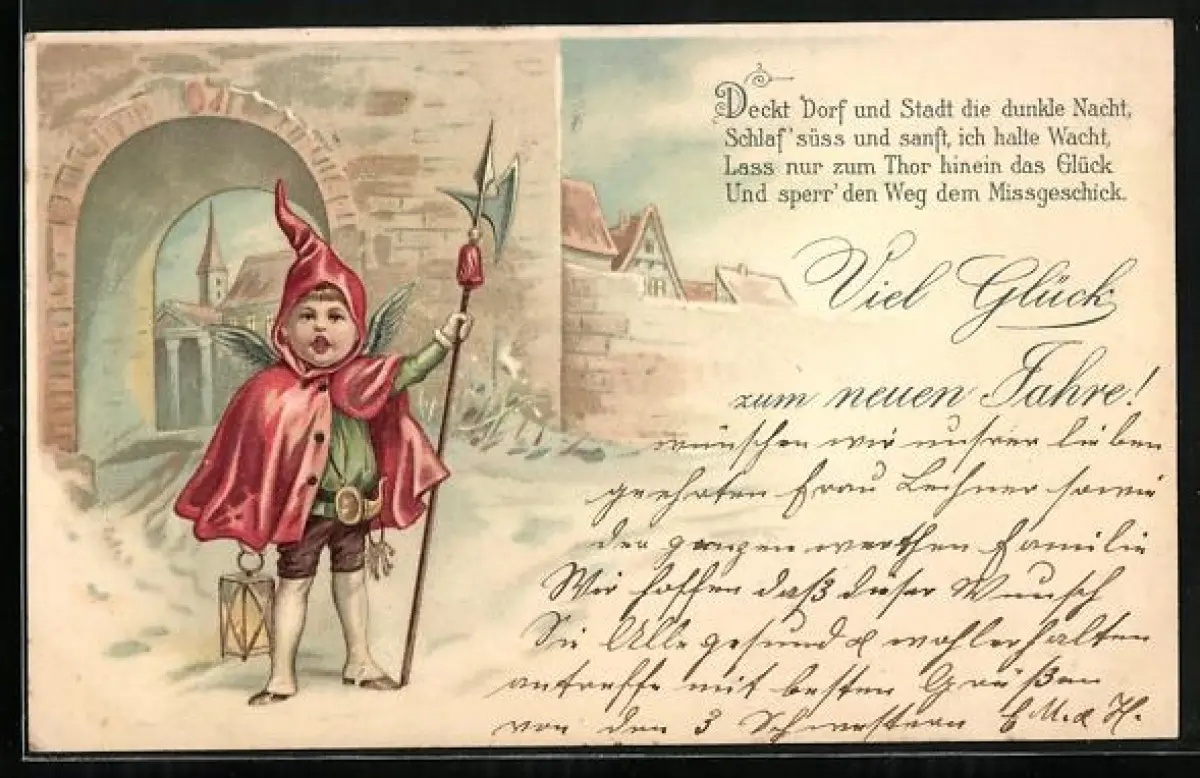 Deckt Dorf und Stadt die dunkle Nacht,
Schlaf' süss und sanft, ich halte Wacht,
Lass nur zum Thor hinein das Glück
Und sperr' den Weg dem Missgeschick.
Viel Glück
zum neuen Jahre!
wünschen wir unsrer lieben
geehrten Frau Lechner sowie
der ganzen werthen Familie
Wir hoffen daß dieser Wunsch
Sie Alle gesund & wohlerhalten
antreffe mit besten Grüßen
von den 3 Schwestern E M. & H.